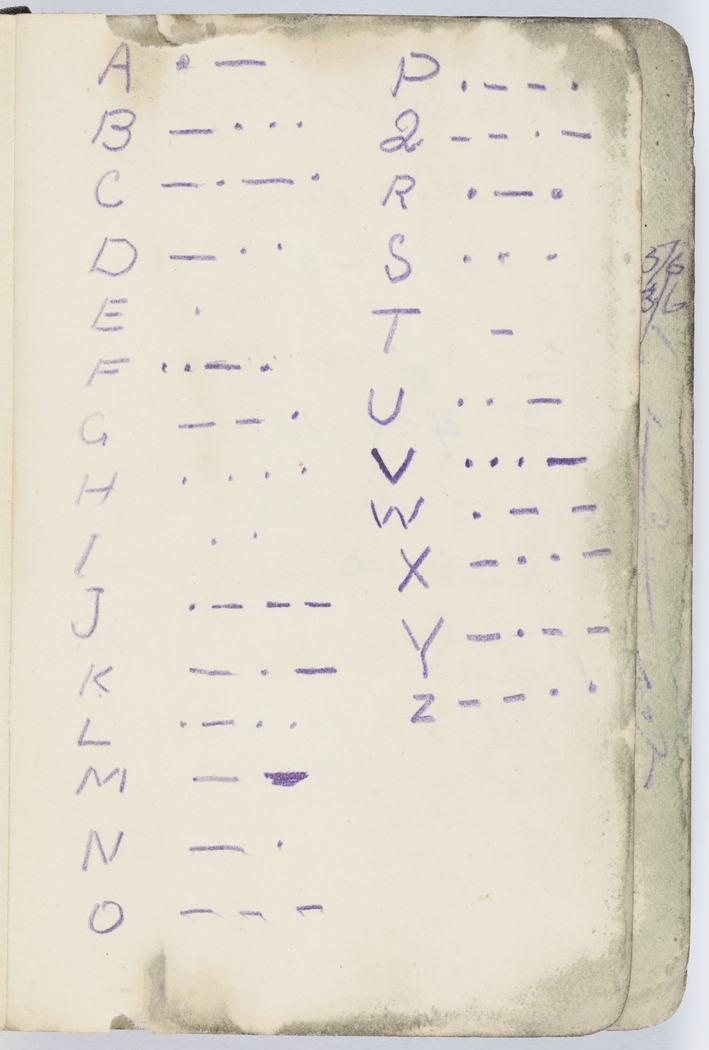 A · —
B — · · ·
C — · — ·
D — · ·
E ·
F · · — ·
G — — ·
H · · · ·
I · ·
J · — — —
K — · —
L · — · ·
M — —
N — ·
O — — —
P · — — ·
Q — — · —
R · — ·
S · · ·
T —
U · · —
V · · · —
W · — —
X — · · —
Y — · — —
Z — — · ·
3/6